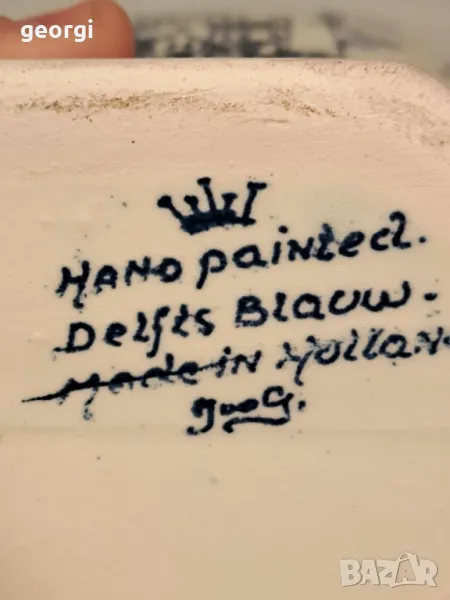 georgi
HAND painted.
Delfts Blauw.
Made in Hollan
BAZAR